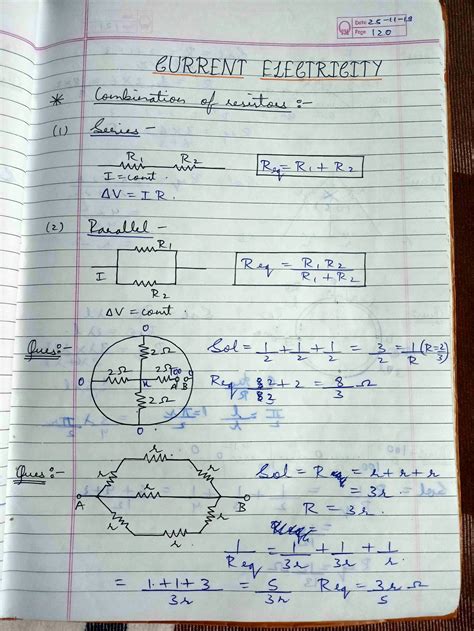 Date 25-11-19
Page 120
CURRENT ELECTRICITY
* Combination of resistors :-
(1) Series -
R₁ R₂
I = const.
ΔV = I R.
Req = R₁ + R₂
(2) Parallel -
R₁
I
R₂
ΔV = const.
Req = R₁R₂ / R₁+R₂
Ques:-
0
2Ω
0 2Ω x 2Ω A B
2Ω
0
Sol = 1/2 + 1/2 + 1/2 = 3/2 = 1/R (R = 2/3)
Req + 2 = 8/3 Ω
Ques:-
r r r
A r B
r r r
Sol = Req = r + r + r
= 3r
R = 3r.
1/Req = 1/3r + 1/3r + 1/r
= 1+1+3 / 3r = 5/3r Req = 3r/5 Ω